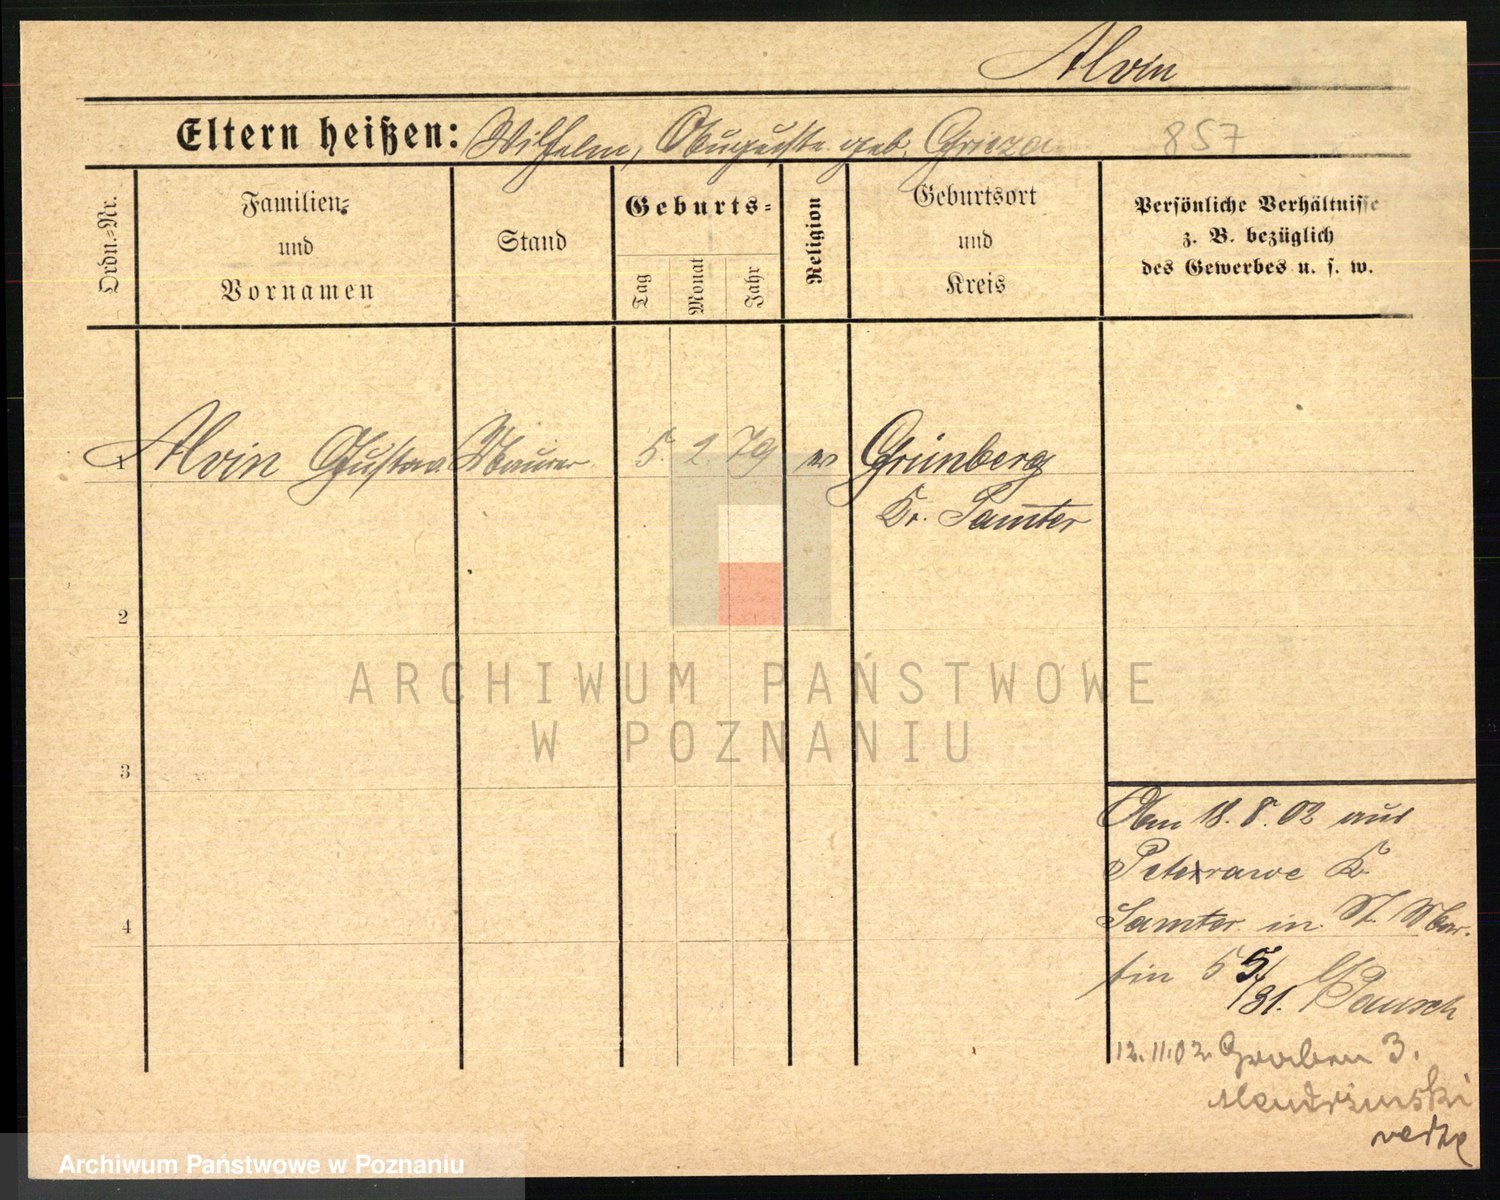 Alvin
Eltern heißen: Wilhelm, Auguste geb. Grieza 857
Ordn.-Nr.
Familien-
und
Vornamen
Stand
Geburts-
Tag
Monat
Jahr
Religion
Geburtsort
und
Kreis
Persönliche Verhältnisse
z. B. bezüglich
des Gewerbes u. s. w.
1 Alvin Gustav Maurer 5. 2. 79 ev Grünberg
Kr. Samter
2
3
4
Am 18. 8. 02 aus
Peterawe Kr.
Samter in St. Mar-
tin 55/31. b/Pausch
12.11.02. Graben 3.
ARCHIWUM PAŃSTWOWE
W POZNANIU
Archiwum Państwowe w Poznaniu